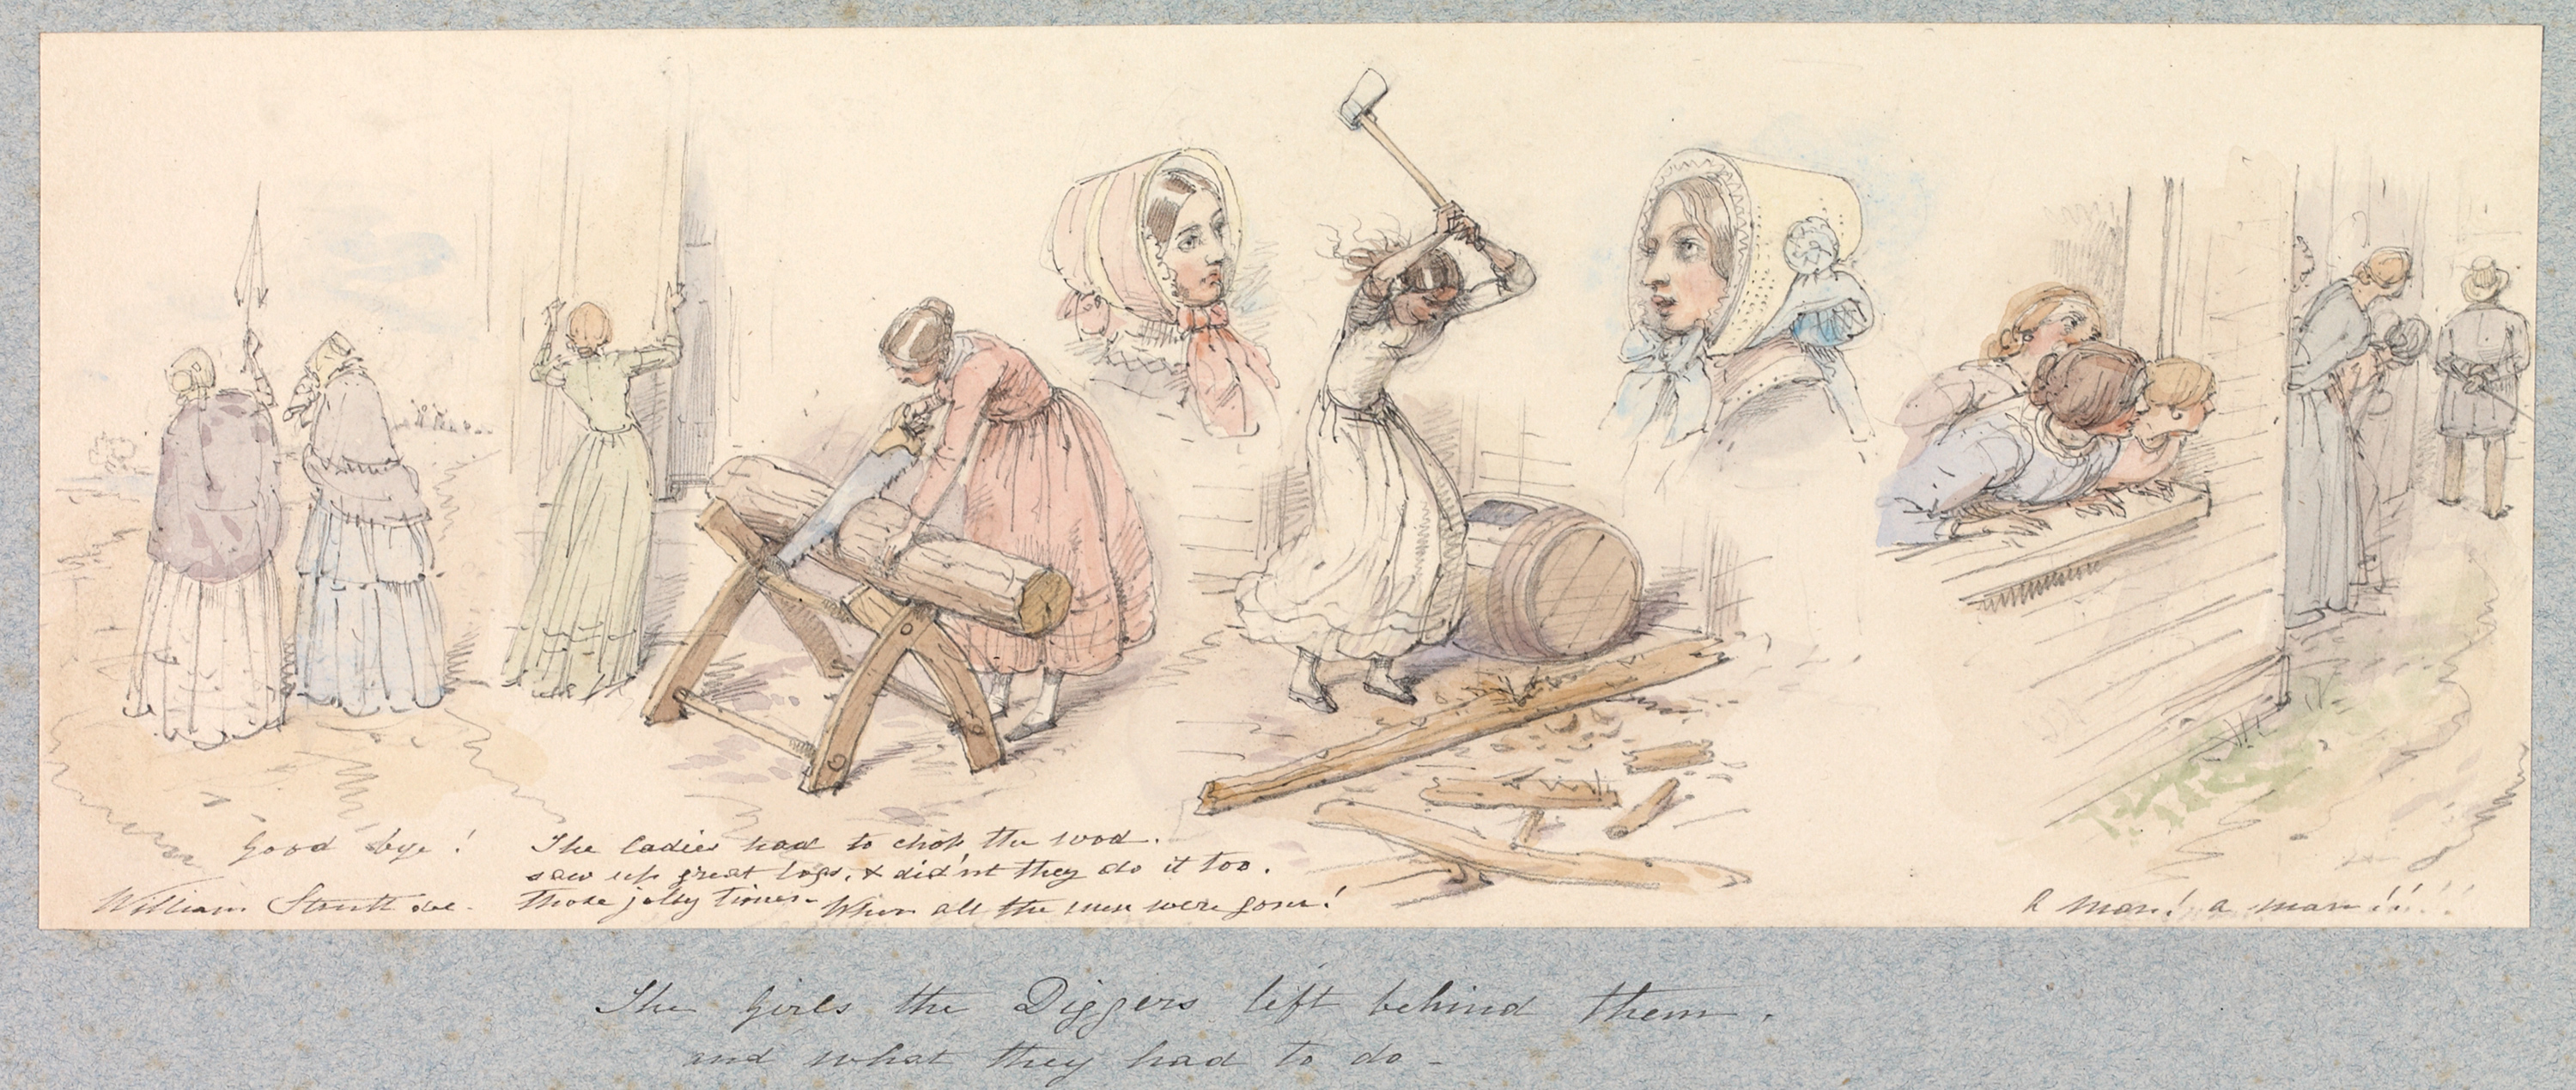 Good bye!
The ladies had to chop the wood.
saw up great logs, & did'nt they do it too.
Those jolly times - When all the men were gone!
William Strutt del.
A man! a man!!!!!
The girls the Diggers left behind them.
and what they had to do -